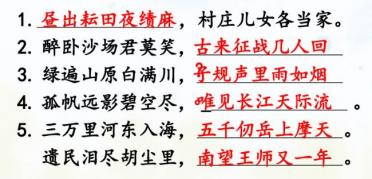 1. 昼出耘田夜绩麻，村庄儿女各当家。
2. 醉卧沙场君莫笑，古来征战几人回。
3. 绿遍山原白满川，子规声里雨如烟。
4. 孤帆远影碧空尽，唯见长江天际流。
5. 三万里河东入海，五千仞岳上摩天。
遗民泪尽胡尘里，南望王师又一年。